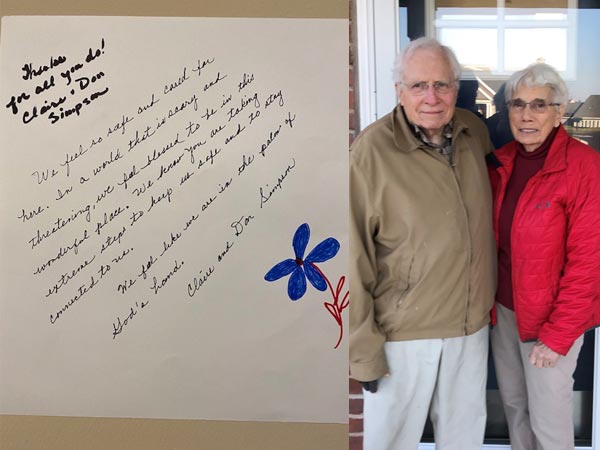 Thanks
for all you do!
Claire & Don
Simpson
We feel so safe and cared for
here. In a world that is scary and
threatening, we feel blessed to be in this
wonderful place. We know you are taking
extreme steps to keep us safe and to stay
connected to us.
We feel like we are in the palm of
God's hand.
Claire and Don Simpson